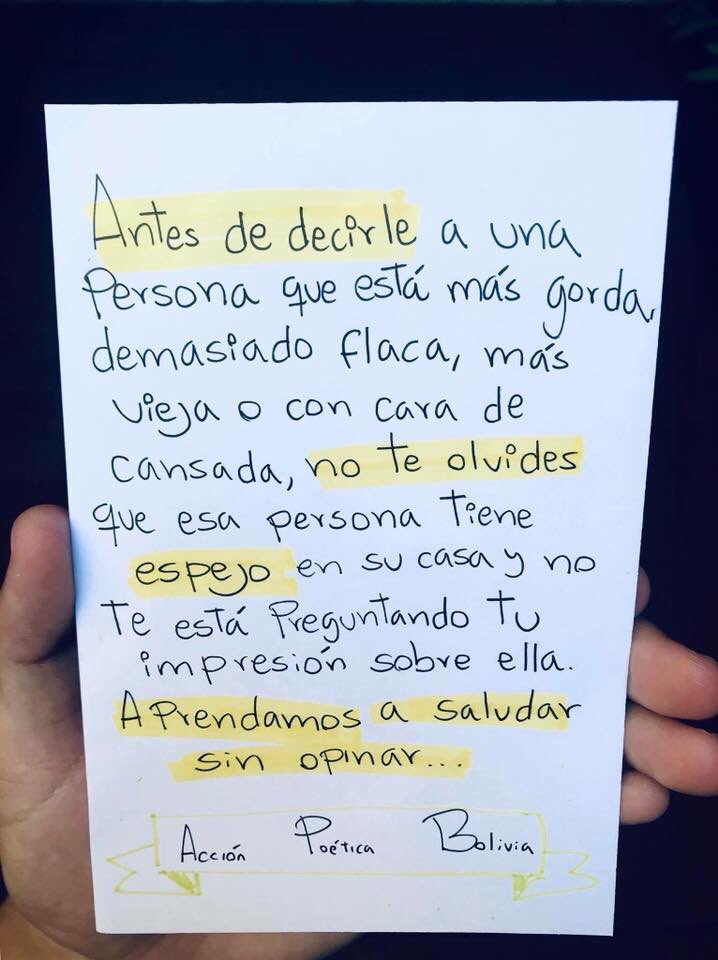 Antes de decirle a una
Persona que está más gorda,
demasiado flaca, más
vieja o con cara de
cansada, no te olvides
que esa persona tiene
espejo en su casa y no
Te está Preguntando Tu
impresión sobre ella.
APrendamos a saludar
sin opinar...
Acción Poética Bolivia